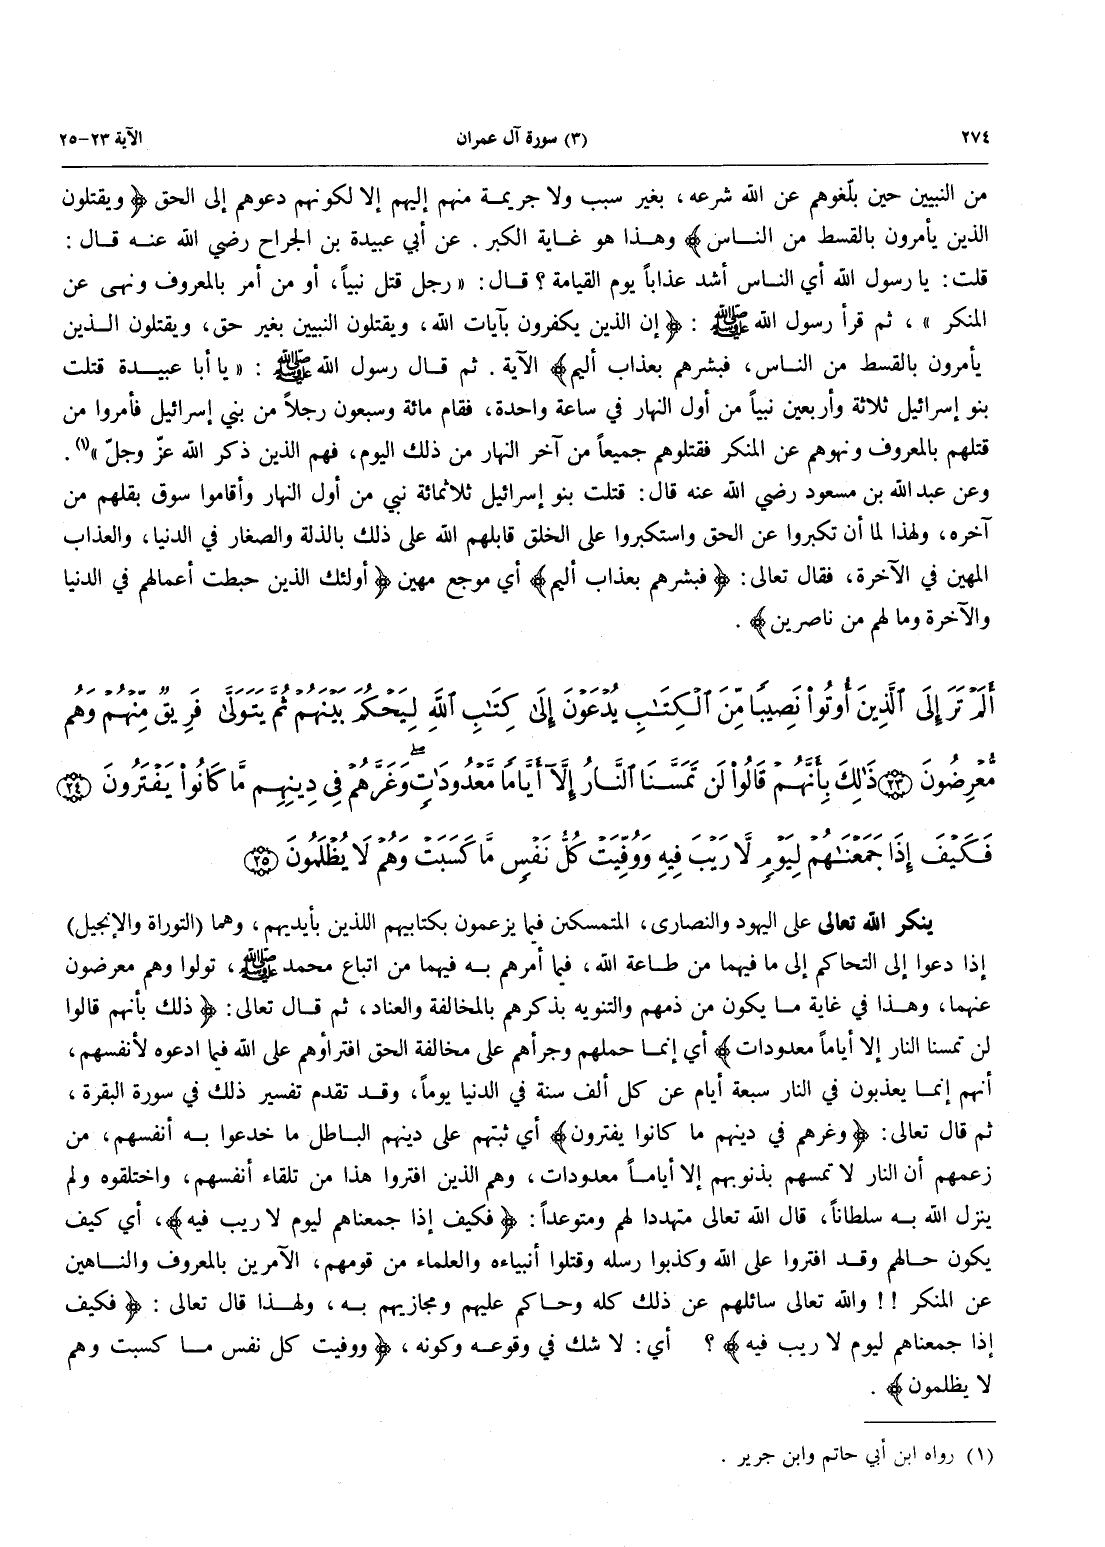 ٢٧٤ (٣) سورة آل عمران الآية ٢٣-٢٥
من النبيين حين بلّغوهم عن الله شرعه، بغير سبب ولا جريمة منهم إليهم إلا لكونهم دعوهم إلى الحق ﴿ويقتلون
الذين يأمرون بالقسط من الناس﴾ وهذا هو غاية الكبر. عن أبي عبيدة بن الجراح رضي الله عنه قال:
قلت: يا رسول الله أي الناس أشد عذاباً يوم القيامة؟ قال: «رجل قتل نبياً، أو من أمر بالمعروف ونهى عن
المنكر»، ثم قرأ رسول الله ﷺ: ﴿إن الذين يكفرون بآيات الله، ويقتلون النبيين بغير حق، ويقتلون الذين
يأمرون بالقسط من الناس، فبشرهم بعذاب أليم﴾ الآية. ثم قال رسول الله ﷺ: «يا أبا عبيدة قتلت
بنو إسرائيل ثلاثة وأربعين نبياً من أول النهار في ساعة واحدة، فقام مائة وسبعون رجلاً من بني إسرائيل فأمروا من
قتلهم بالمعروف ونهوهم عن المنكر فقتلوهم جميعاً من آخر النهار من ذلك اليوم، فهم الذين ذكر الله عزّ وجلّ»(١).
وعن عبد الله بن مسعود رضي الله عنه قال: قتلت بنو إسرائيل ثلاثمائة نبي من أول النهار وأقاموا سوق بقلهم من
آخره، ولهذا لما أن تكبروا عن الحق واستكبروا على الخلق قابلهم الله على ذلك بالذلة والصغار في الدنيا، والعذاب
المهين في الآخرة، فقال تعالى: ﴿فبشرهم بعذاب أليم﴾ أي موجع مهين ﴿أولئك الذين حبطت أعمالهم في الدنيا
والآخرة وما لهم من ناصرين﴾.
أَلَمْ تَرَ إِلَى ٱلَّذِينَ أُوتُوا۟ نَصِيبًا مِّنَ ٱلْكِتَـٰبِ يُدْعَوْنَ إِلَىٰ كِتَـٰبِ ٱللَّهِ لِيَحْكُمَ بَيْنَهُمْ ثُمَّ يَتَوَلَّىٰ فَرِيقٌ مِّنْهُمْ وَهُم
مُّعْرِضُونَ ﴿٢٣﴾ ذَٰلِكَ بِأَنَّهُمْ قَالُوا۟ لَن تَمَسَّنَا ٱلنَّارُ إِلَّآ أَيَّامًا مَّعْدُودَٰتٍ ۖ وَغَرَّهُمْ فِى دِينِهِم مَّا كَانُوا۟ يَفْتَرُونَ ﴿٢٤﴾
فَكَيْفَ إِذَا جَمَعْنَـٰهُمْ لِيَوْمٍ لَّا رَيْبَ فِيهِ وَوُفِّيَتْ كُلُّ نَفْسٍ مَّا كَسَبَتْ وَهُمْ لَا يُظْلَمُونَ ﴿٢٥﴾
ينكر الله تعالى على اليهود والنصارى، المتمسكين فيما يزعمون بكتابيهم اللذين بأيديهم، وهما (التوراة والإنجيل)
إذا دعوا إلى التحاكم إلى ما فيهما من طاعة الله، فيما أمرهم به فيهما من اتباع محمد ﷺ، تولوا وهم معرضون
عنهما، وهذا في غاية ما يكون من ذمهم والتنويه بذكرهم بالمخالفة والعناد، ثم قال تعالى: ﴿ذلك بأنهم قالوا
لن تمسنا النار إلا أياماً معدودات﴾ أي إنما حملهم وجرأهم على مخالفة الحق افتراؤهم على الله فيما ادعوه لأنفسهم،
أنهم إنما يعذبون في النار سبعة أيام عن كل ألف سنة في الدنيا يوماً، وقد تقدم تفسير ذلك في سورة البقرة،
ثم قال تعالى: ﴿وغرهم في دينهم ما كانوا يفترون﴾ أي ثبتهم على دينهم الباطل ما خدعوا به أنفسهم، من
زعمهم أن النار لا تمسهم بذنوبهم إلا أياماً معدودات، وهم الذين افتروا هذا من تلقاء أنفسهم، واختلقوه ولم
ينزل الله به سلطاناً، قال الله تعالى متهددا لهم ومتوعداً: ﴿فكيف إذا جمعناهم ليوم لا ريب فيه﴾، أي كيف
يكون حالهم وقد افتروا على الله وكذبوا رسله وقتلوا أنبياءه والعلماء من قومهم، الآمرين بالمعروف والناهين
عن المنكر!! والله تعالى سائلهم عن ذلك كله وحاكم عليهم ومجازيهم به، ولهذا قال تعالى: ﴿فكيف
إذا جمعناهم ليوم لا ريب فيه﴾؟ أي: لا شك في وقوعه وكونه، ﴿ووفيت كل نفس ما كسبت وهم
لا يظلمون﴾.
(١) رواه ابن أبي حاتم وابن جرير.